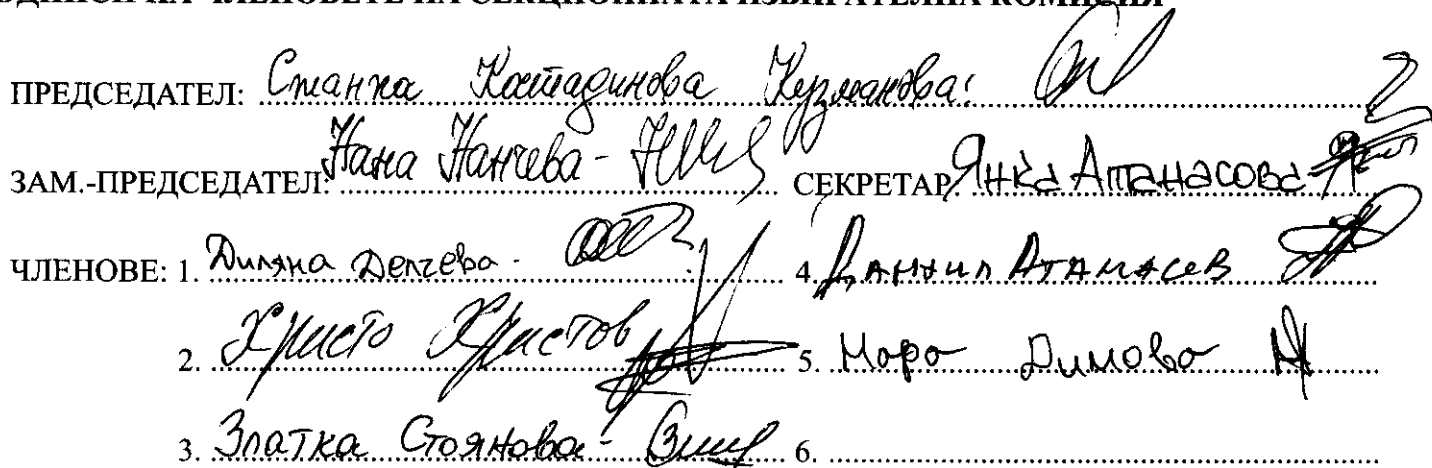 ПОДПИСИ НА ЧЛЕНОВЕТЕ НА СЕКЦИОННАТА ИЗБИРАТЕЛНА КОМИСИЯ
ПРЕДСЕДАТЕЛ: Станка Костадинова Кузманова:
ЗАМ.-ПРЕДСЕДАТЕЛ: Нана Нанчева - СЕКРЕТАР: Янка Атанасова -
ЧЛЕНОВЕ: 1. Диляна Делчева - 4. Даниил Атанасов
2. Христо Христов 5. Нора Димова
3. Златка Стоянова - 6.